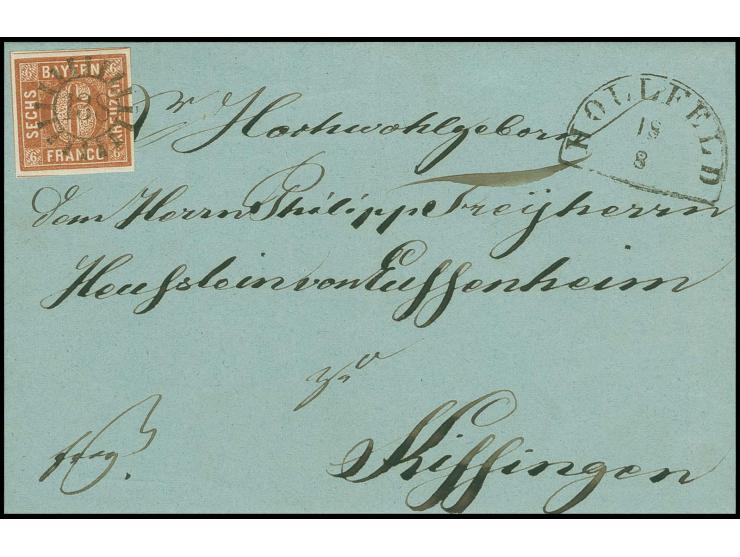 BAYERN
SECHS
KREUZER
FRANCO
6
HOLLFELD
19
8
Sr Hochwohlgeborn
dem Herrn Philipp Freyherrn
Heußlein von Eussenheim
zu
Kissingen
frey.